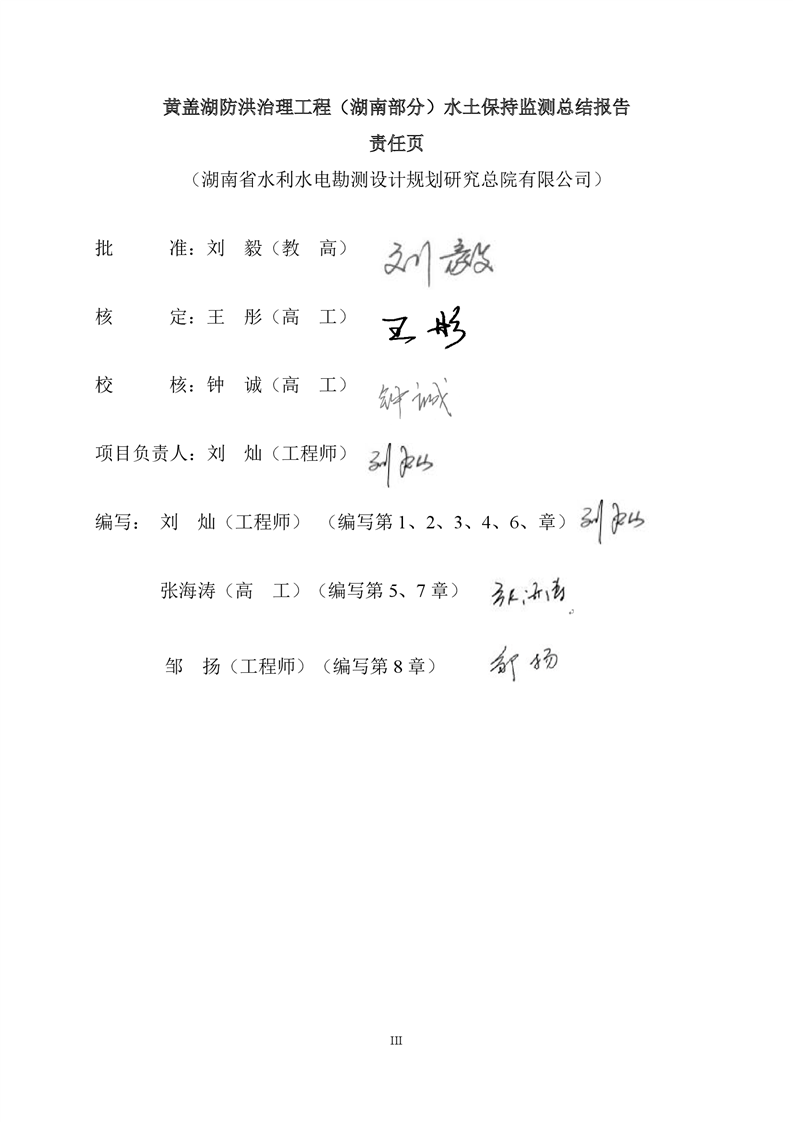 黄盖湖防洪治理工程（湖南部分）水土保持监测总结报告
责任页
（湖南省水利水电勘测设计规划研究总院有限公司）
批　　准：刘　毅（教　高） 刘毅
核　　定：王　彤（高　工） 王彤
校　　核：钟　诚（高　工） 钟诚
项目负责人：刘　灿（工程师） 刘灿
编写：　刘　灿（工程师）　（编写第 1、2、3、4、6、章） 刘灿
张海涛（高　工）（编写第 5、7 章） 张海涛
邹　扬（工程师）（编写第 8 章） 邹扬
III